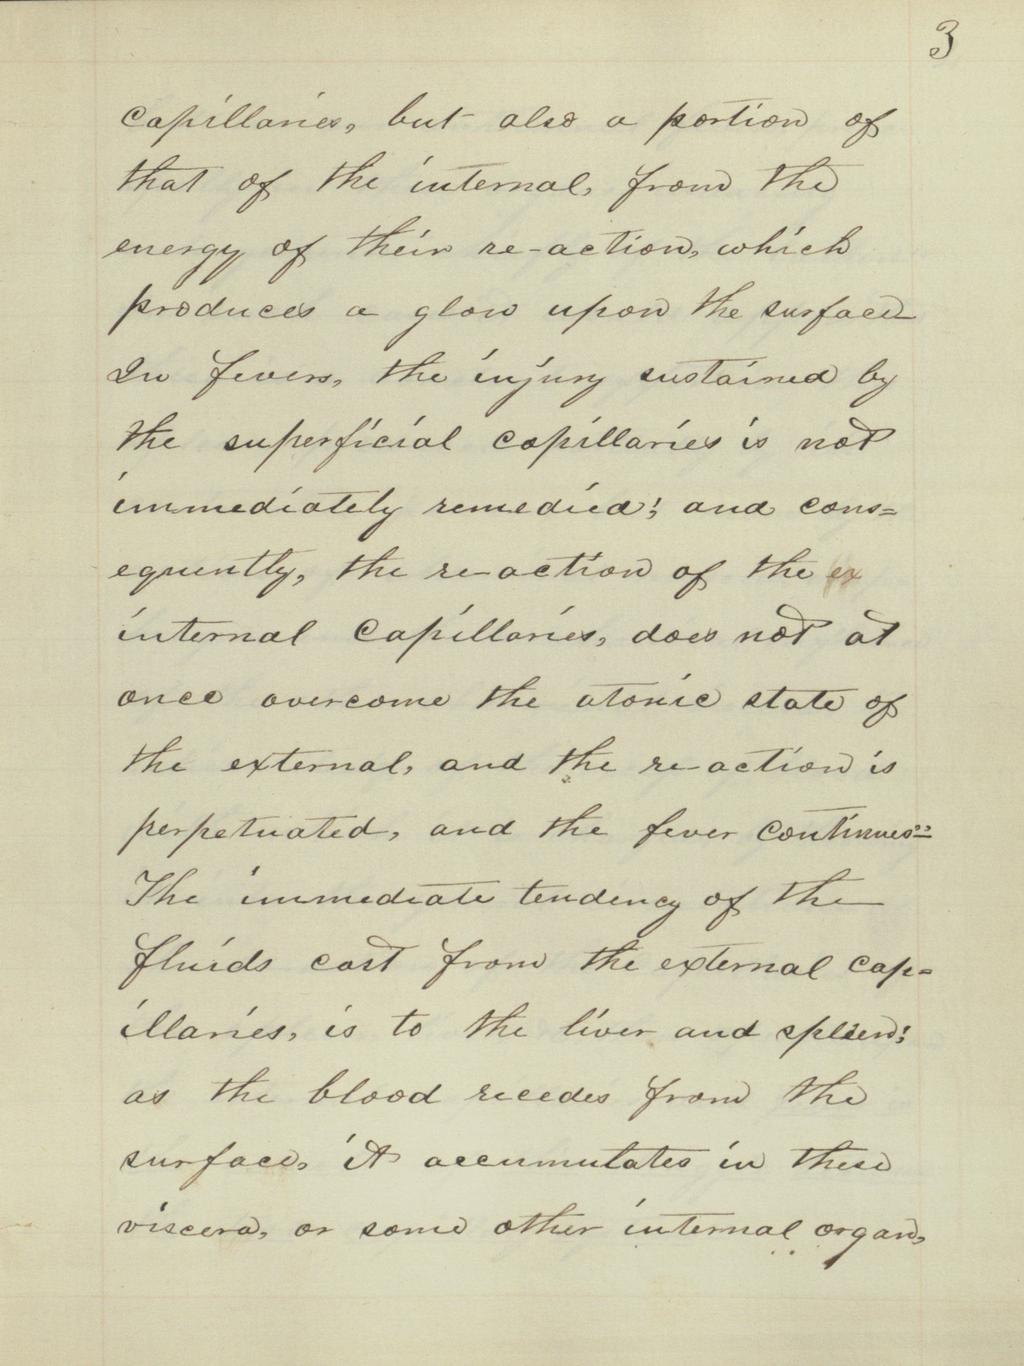 3
capillaries, but also a portion of
that of the internal, from the
energy of their re-action, which
produces a glow upon the surface
In fevers, the injury sustained by
the superficial capillaries is not
immediately remedied; and cons=
equently, the re-action of the ex
internal capillaries, does not at
once overcome the atonic state of
the external, and the re-action is
perpetuated, and the fever continues=
The immediate tendency of the
fluids cast from the external cap=
illaries, is to the liver and spleen;
as the blood recedes from the
surface, it accumulates in these
viscera, or some other internal organ,